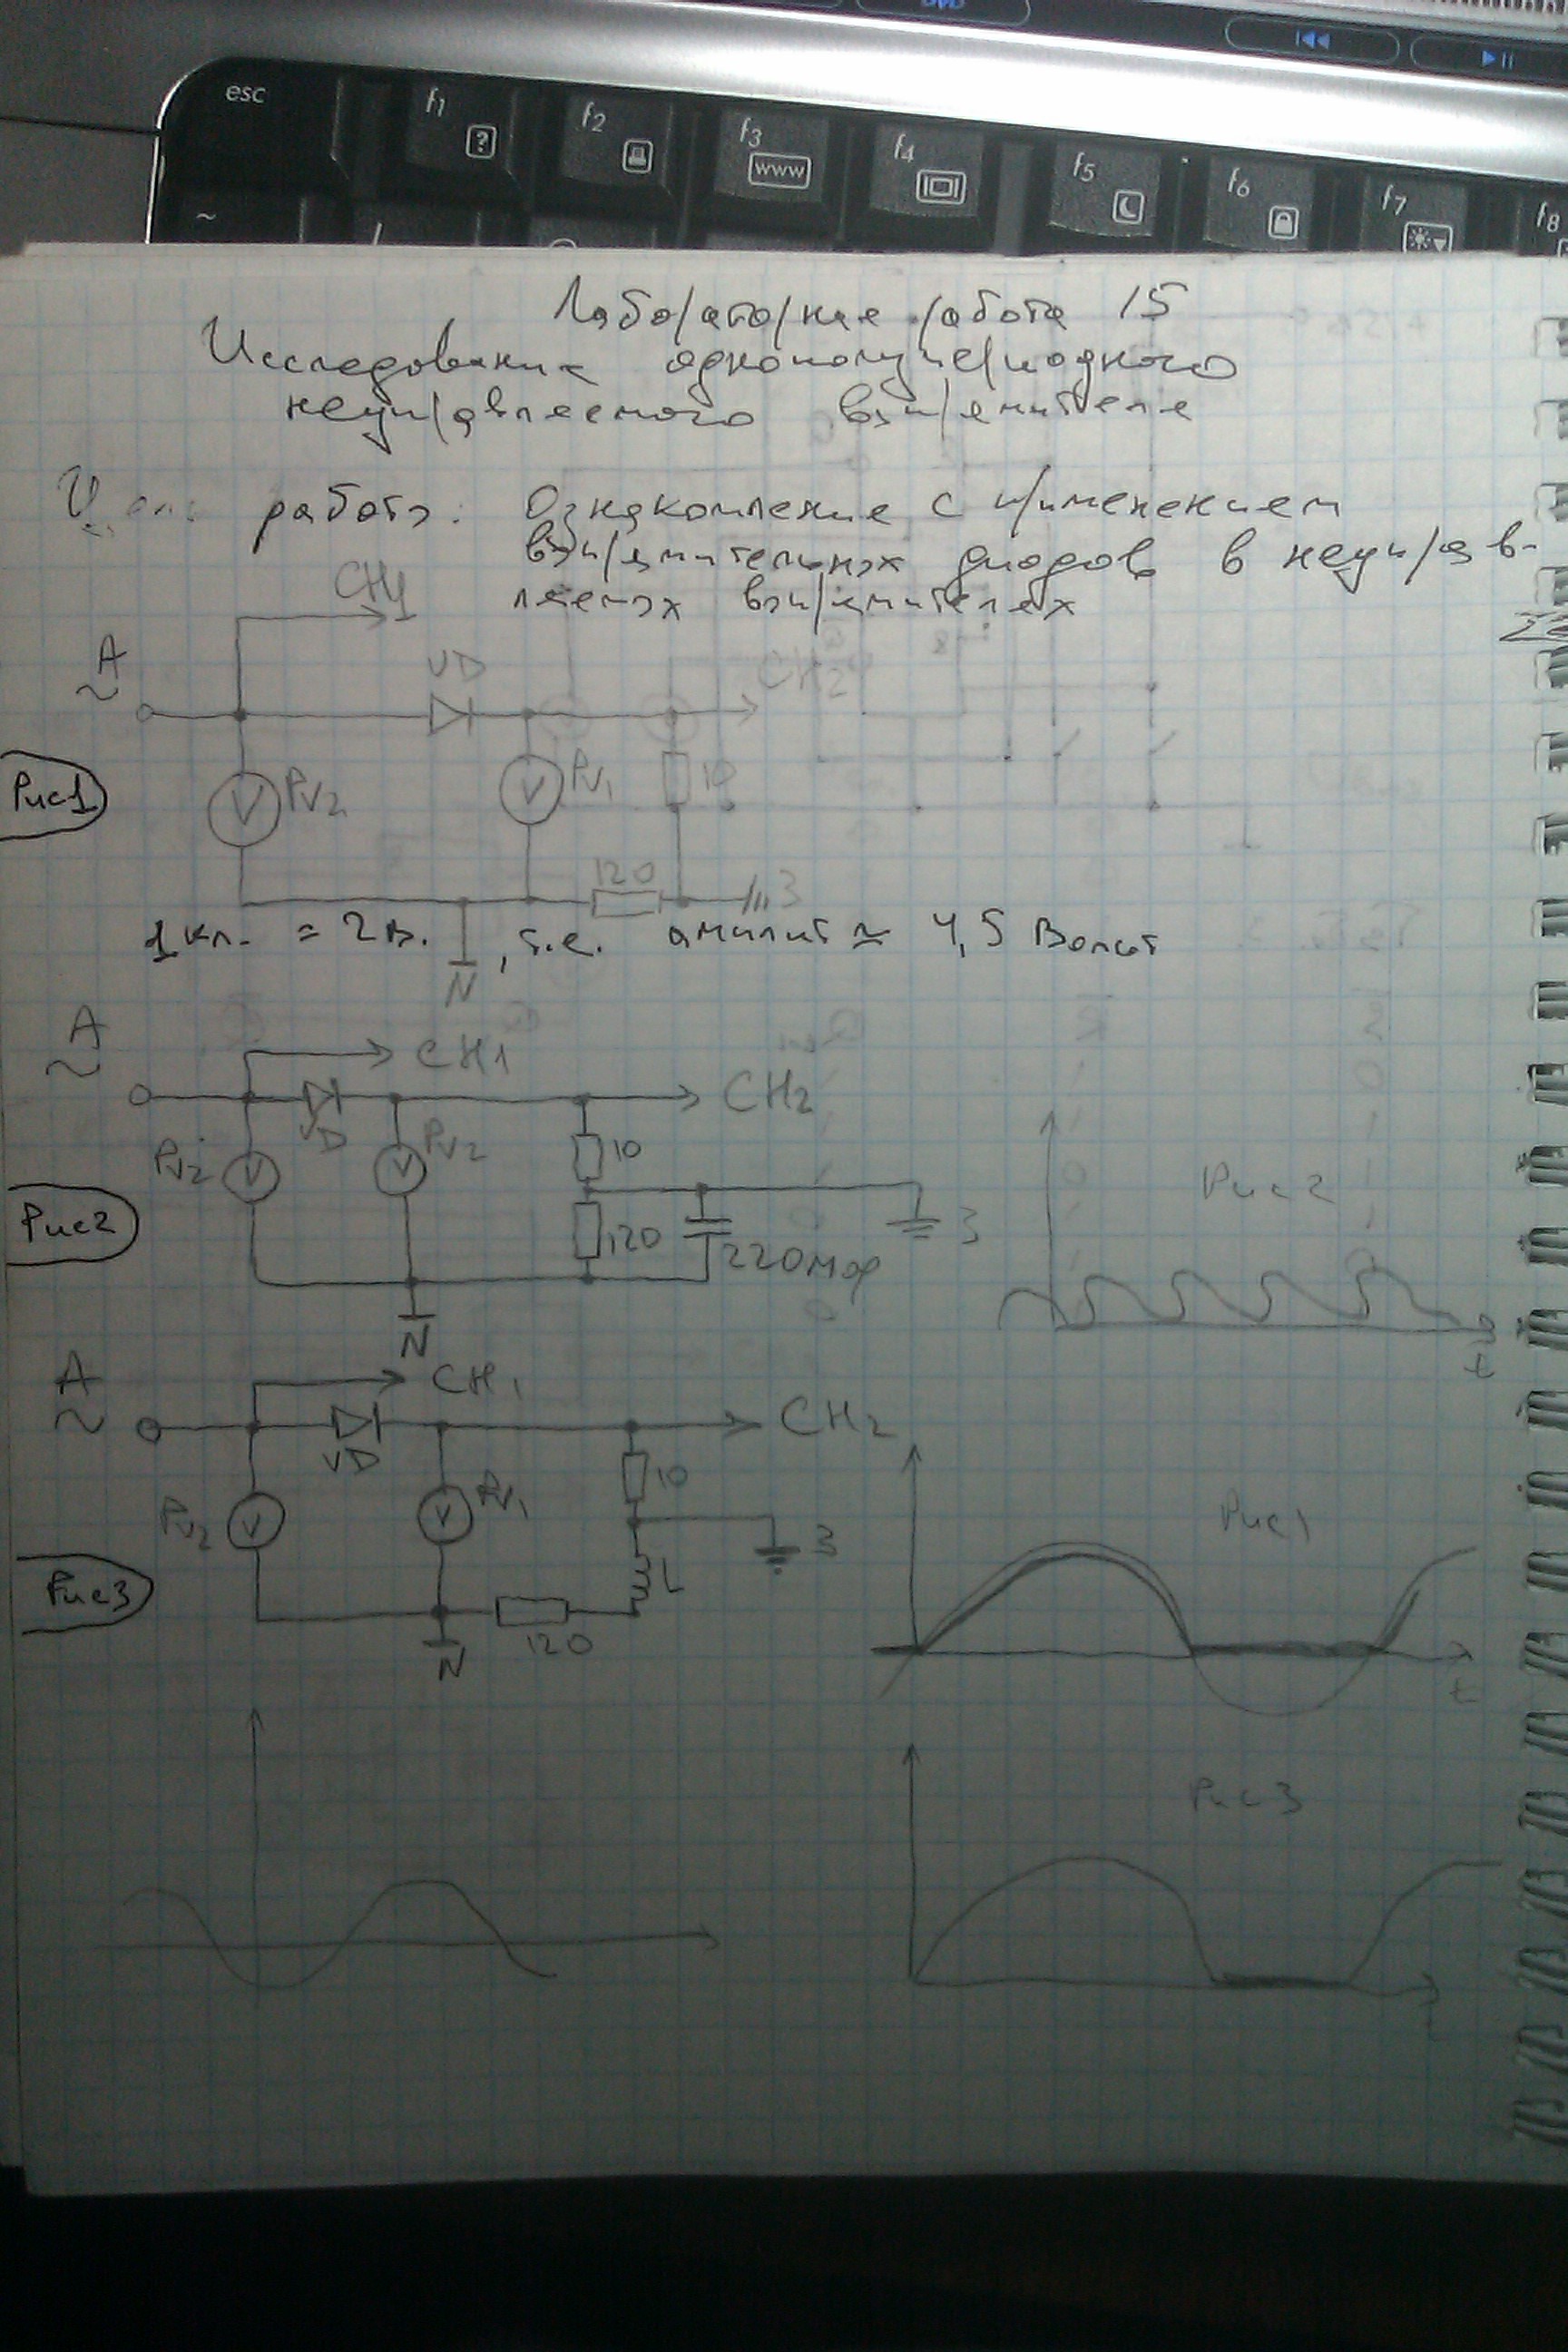 esc
f1
?
f2
f3
www
f4
f5
f6
f7
f8
~
Лабораторная работа 15
Исследование однополупериодного
неуправляемого выпрямителя
Цель работы: Ознакомление с применением
выпрямительных диодов в неуправ-
ляемых выпрямителях
CH1
A
~
VD
CH2
Рис1
V
PV2
V
PV1
10
120
З
1 кл. = 2 В. , т.е. амплит ≈ 4,5 Вольт
N
A
~
CH1
CH2
VD
PV2
V
PV2
V
10
Рис2
120
220мф
З
N
Рис2
t
A
~
CH1
CH2
VD
PV2
V
PV1
V
10
З
L
Рис3
120
N
Рис1
t
Рис3
t